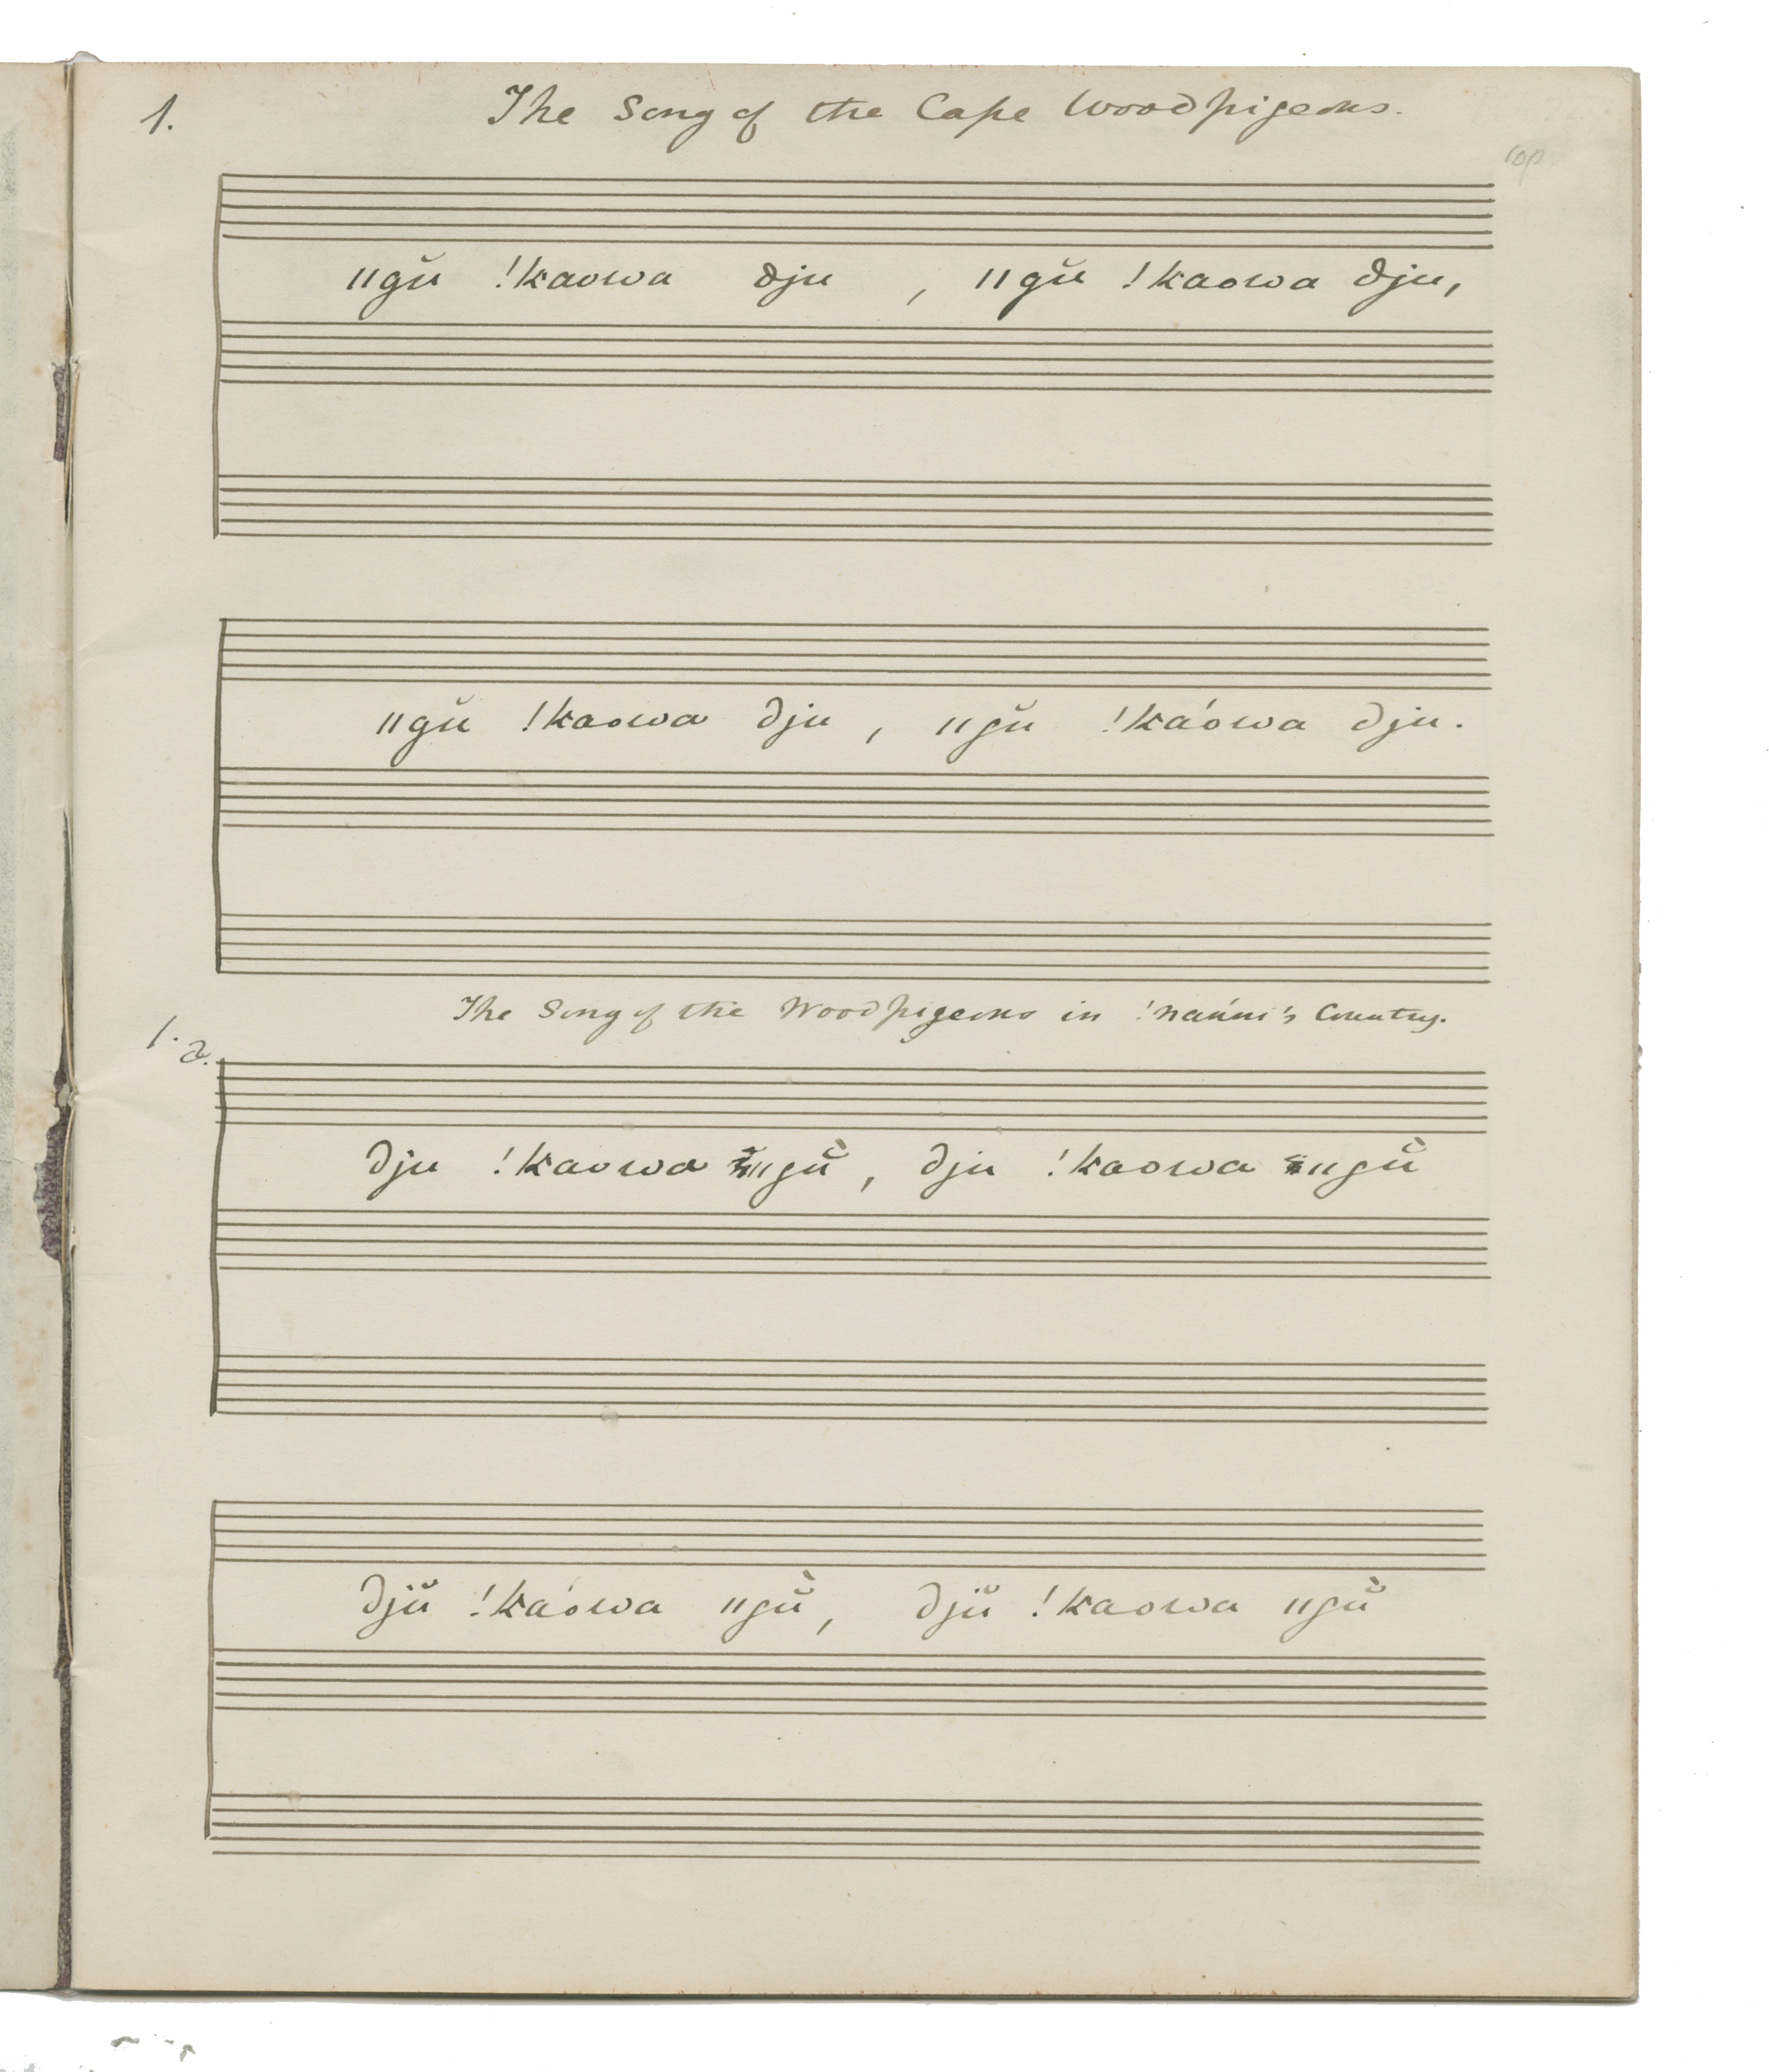 1. The Song of the Cape Woodpigeons.
ǁgŭ !kaowa dju , ǁgŭ !kaowa dju,
ǁgŭ !kaowa dju , ǁgŭ !káowa dju.
The Song of the Woodpigeons in !nanni's Country.
1. a.
dju !kaowa ǁgŭ̀ , dju !kaowa ǁgŭ̀
djŭ !káowa ǁgŭ̀, djŭ !kaowa ǁgŭ̀